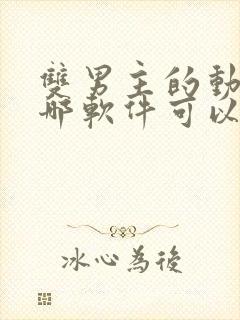 雙男主的動
哪軟件可以
冰心為後